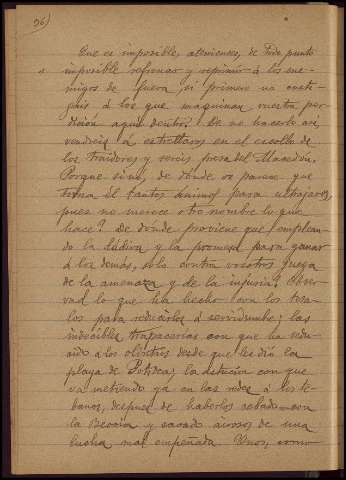 96)
Que es imposible, atenienses, de todo punto
imposible refrenar y reprimir á los ene-
migos de fuera, si primero no casti-
gais á los que maquinan vuestra per-
dición aquí dentro. De no hacerlo así,
vendreis á estrellaros en el escollo de
los traidores y sereis presa del Macedón.
Porque sino, de dónde os parece que
toma él tantos ánimos para ultrajaros,
pues no merece otro nombre lo que
hace? De dónde proviene que emplean-
do la dádiva y la promesa para ganar
á los demás, solo contra vosotros juega
de la amenaza y de la injuria? Obser-
vad lo que ha hecho con los tesa-
los para reducirlos á servidumbre; las
indecibles trapacerías con que ha redu-
cido á los olintios desde que les dió la
playa de Potidea; la detección con que
va metiendo ya en las redes á los te-
banos, después de haberlos cebado con
la Beocia y sacado airosos de una
lucha mal empeñada. Unos, como